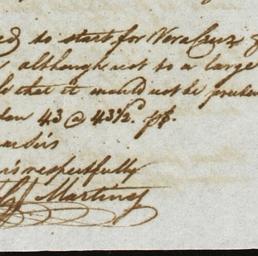 to start for Vera Cruz
although not to a large
that it would not be
43 @ 43½ p$.
respectfully
Martinez